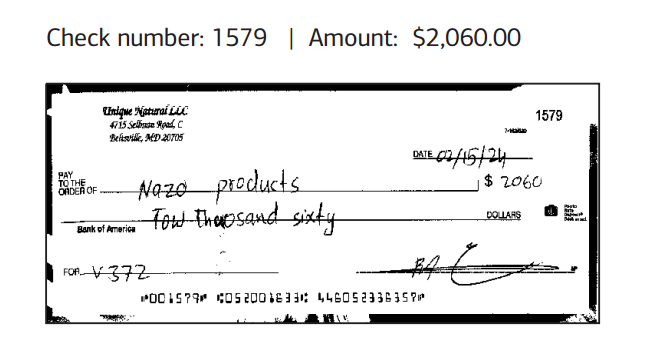 Check number: 1579 | Amount: $2,060.00
Unique Natural LLC
4715 Sellman Road, C
Beltsville, MD 20705
1579
DATE 02/15/24
PAY
TO THE
ORDER OF Nazo products $ 2060
Tow Thousand sixty DOLLARS
Bank of America
FOR V 372